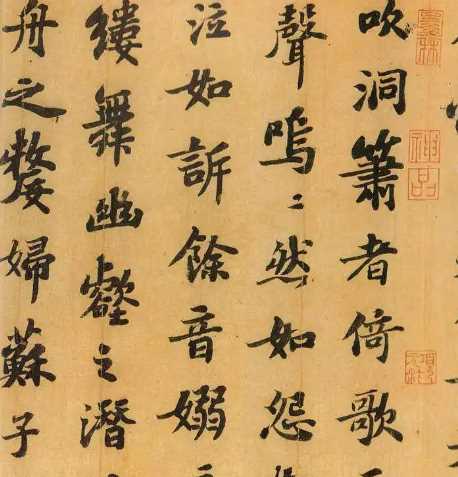 吹洞簫者倚歌
聲嗚〻然如怨
泣如訴餘音嫋
縷舞幽壑之潛
舟之嫠婦蘇子
神品